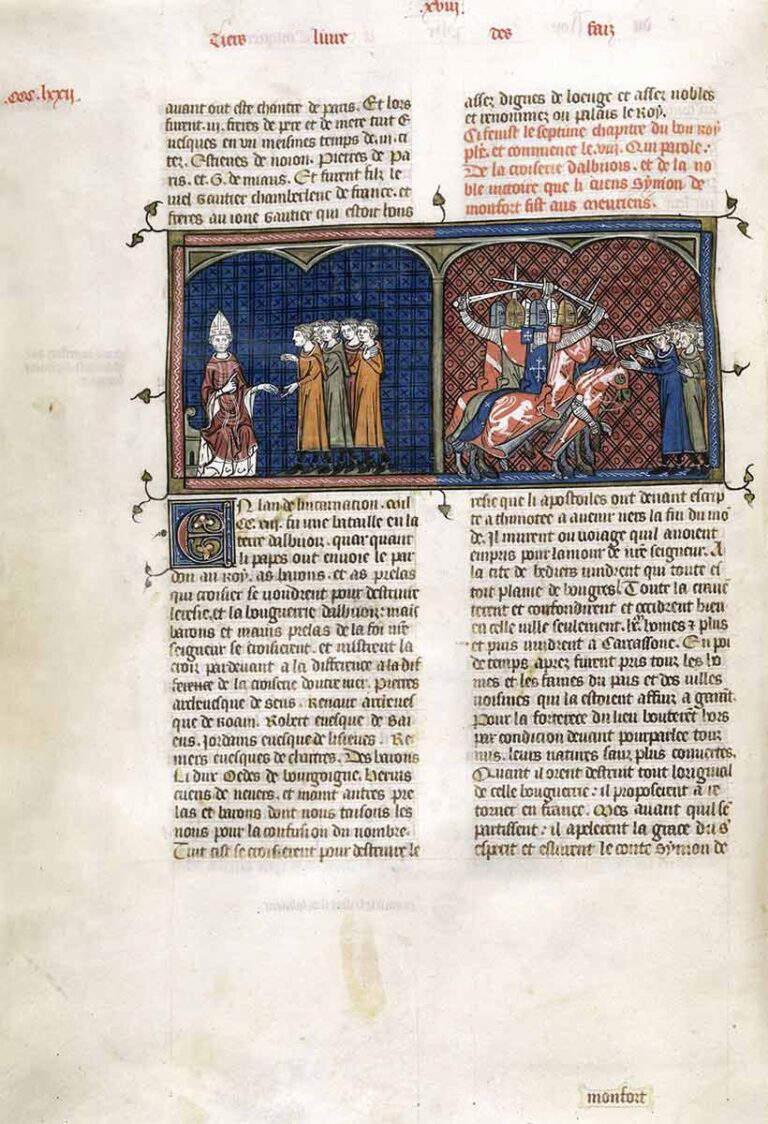 .xviij.
Tiers livre des faiz
.ccc.lxxij.
avant out este chantre de paris. Et lors
furent .iij. freres de pere et de mere tuit e
vesques en un meismes temps de .iij. ci
tez. Estienes de noion. Pierres de pa
ris. et .G. de miaus. Et furent filz le
viel Gautier chamberlenc de france. et
freres au ione Gautier qui estoit bons
assez dignes de loenge et assez nobles
et renommez ou palais le Roy.
Ci fenist le septime chapitre du bon Roy
phe. et commence le .viij. Qui parole.
De la croiserie dalbuiois. et de la no
ble victoire que li cuens Symon de
monfort fist aus
En lan de lincarnation.
CC. fu une bataille en la
terre dalbuiois. quar quant
li papes ont envoie le par
don au Roy. as barons. et as prelas
qui croisier se voudrent pour destruire
leresie. et la bouguerie dalbuiois: maint
barons et mains prelas de la foi nre
seigneur se croisierent. et mistrent la
croiz par devant a la difference a la dif
ference de la croiserie doutre mer. Pierres
arcevesque de sens. Renaut
que de Roam. Robert evesque de Bai
eus. Jordains evesque de lisieues. Re
niers evesques de chartres. Des barons
Li dux Oedes de bourgoigne. Hervis
cuens de nevers. et maint autres pre
las et barons dont nous taisons les
nons pour la confusion du nombre.
Tuit cist se croisierent pour destruire le
resie que li apostoiles out devant escrip
te a thimotee a avenir vers la fin du mo
de. Il murent ou voiage quil avoient
empris pour lamour de nre seigneur. A
la cite de bediers vindrent qui toute es
toit plaine de bougres. Toute la
et confondirent et occidrent bien
en celle ville seulement. homes et plus
et puis vindrent a Carcassone. En poi
de temps aprez furent pris touz les ho
mes et les fames du pais et des villes
voisines qui la estoient affui a garant.
Pour la forterece du lieu bouterent hors
par condition devant pourparlee touz
nus. leurs natures sanz plus couvertes.
Quant il orent destruit tout loriginal
de celle bouguerie: il proposerent a re
torner en france. Mes avant quil se
partissent: il apelerent la grace du s'
esperit et eslurent le conte Symon de
monfort